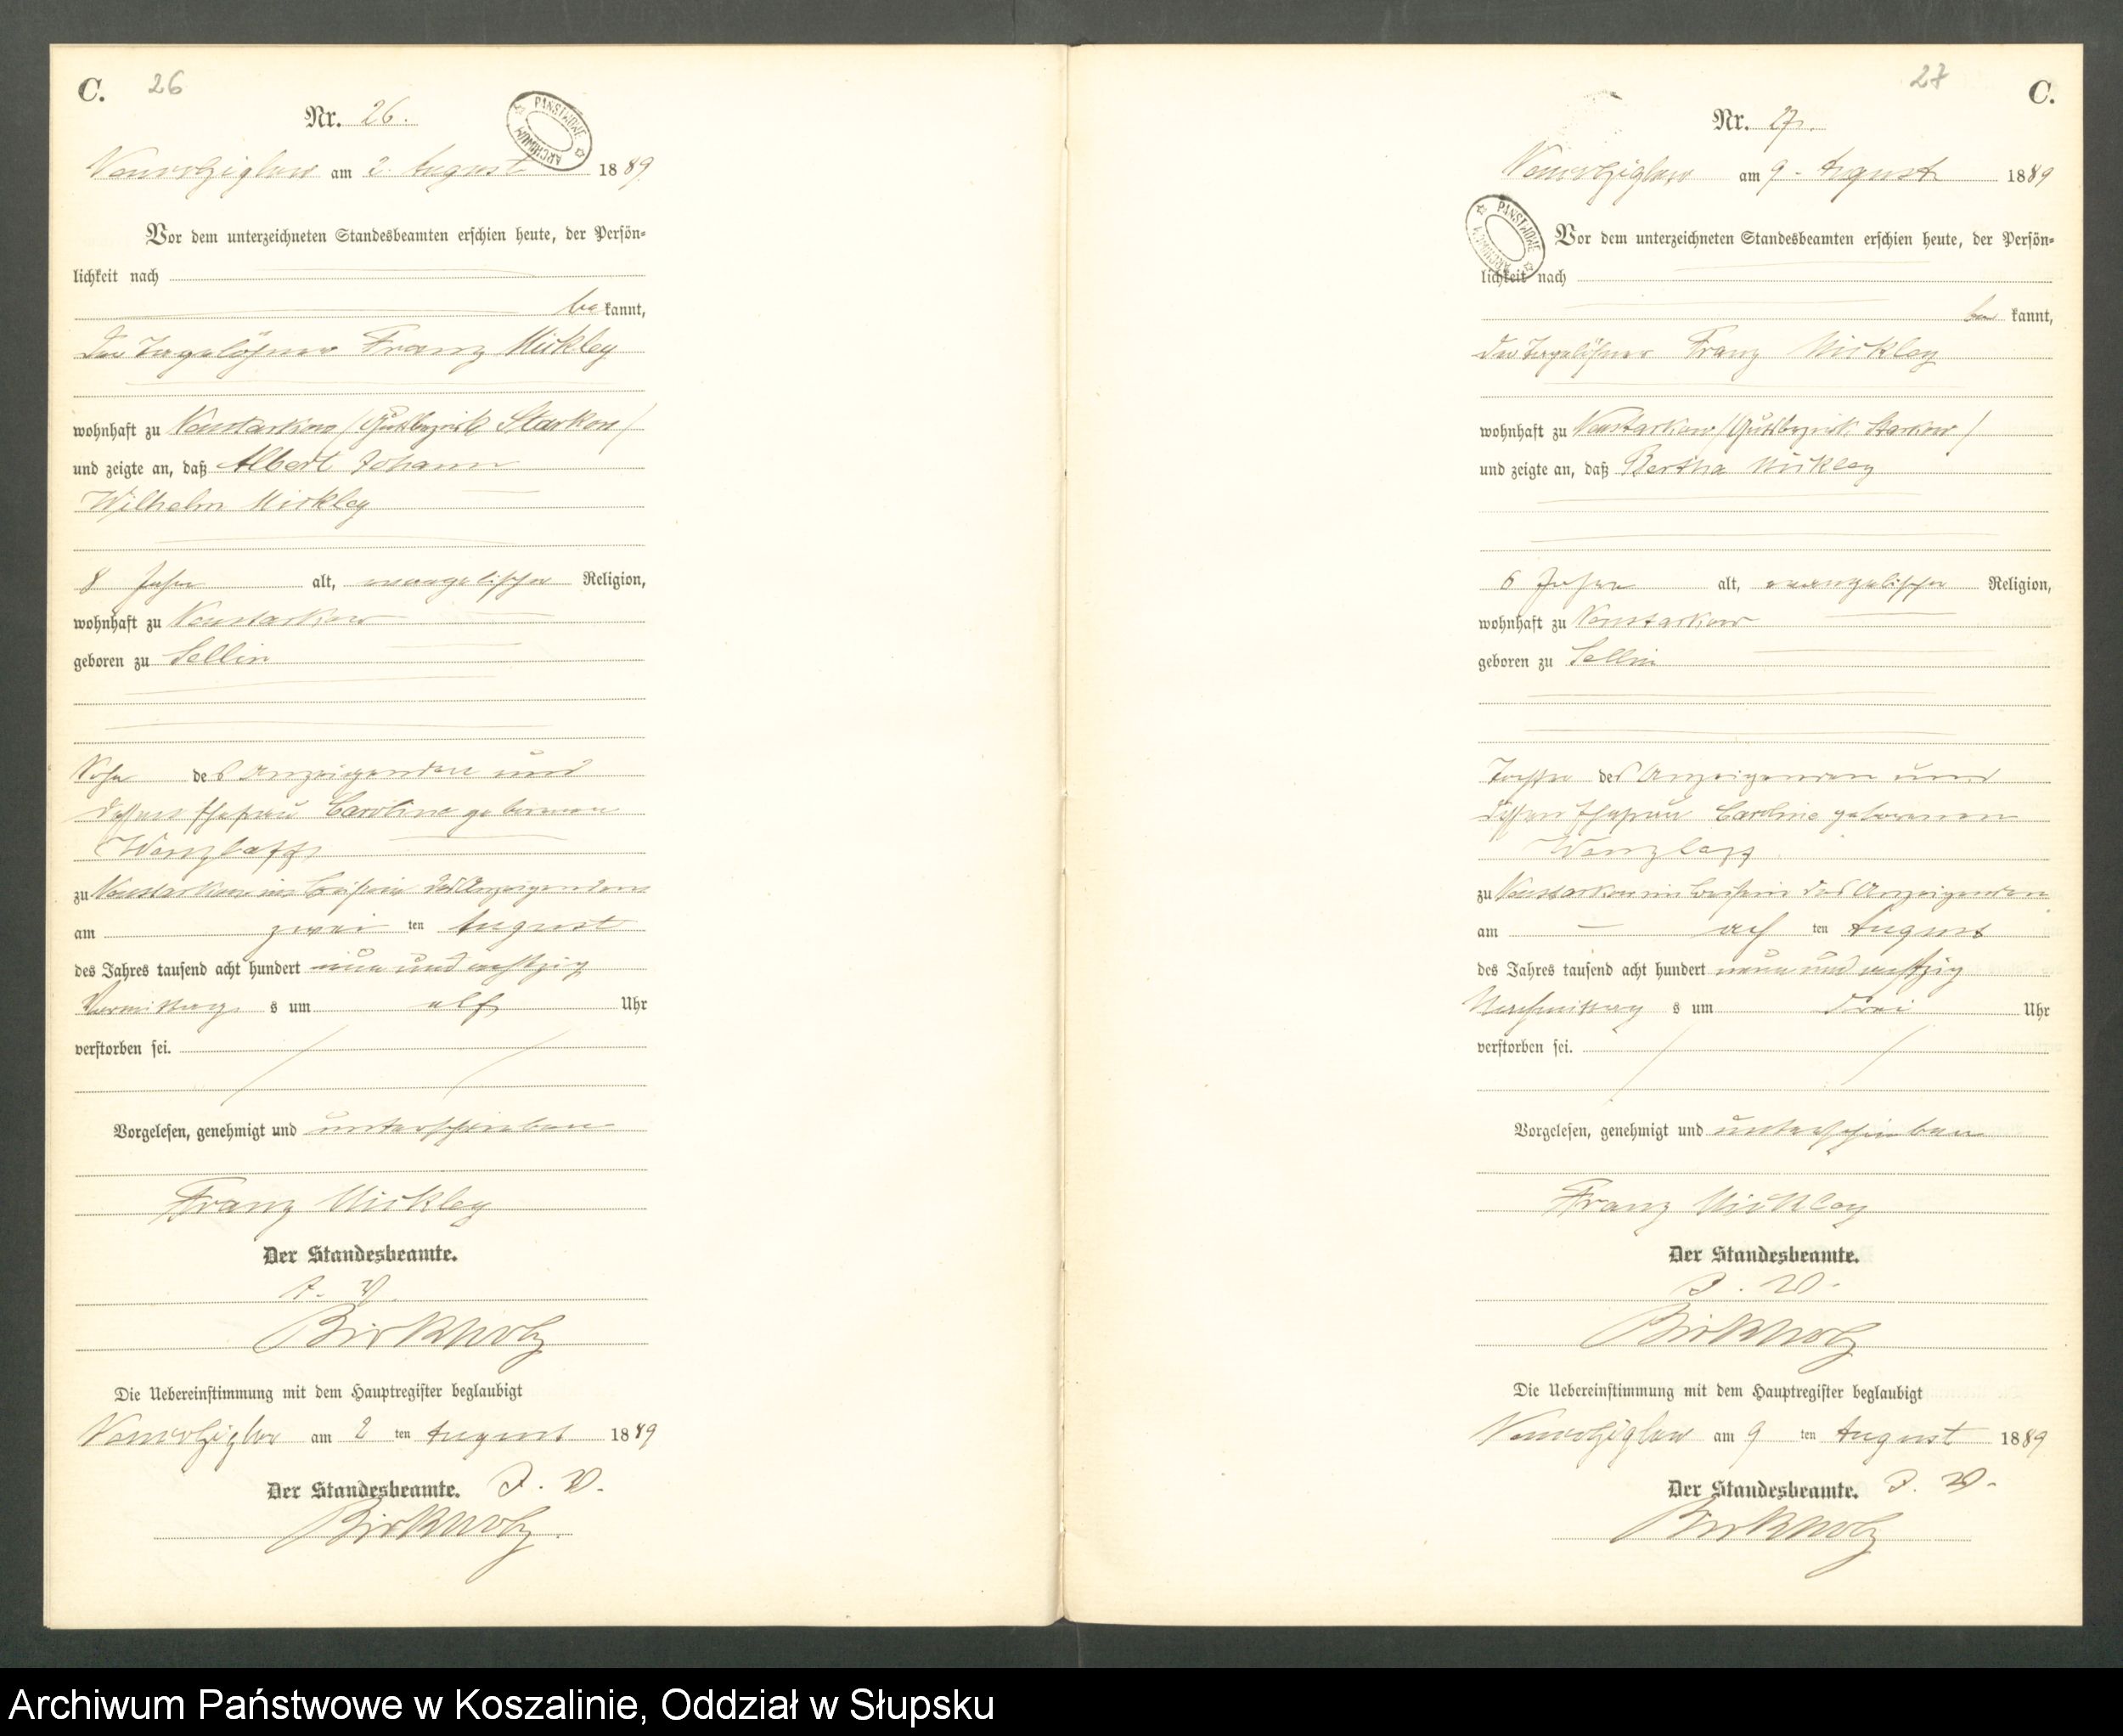 C. 26
Nr. 26.
PANSTWOWE ARCHIWUM
am 2. August 1889
Vor dem unterzeichneten Standesbeamten erschien heute, der Persön=
lichkeit nach
be kannt,
der Tagelöhner Franz Mickley
wohnhaft zu Neustarkow /Gutsbezirk Starkow/
und zeigte an, daß Albert Johann
Wilhelm Mickley
8 Jahre alt, evangelischer Religion,
wohnhaft zu Neustarkow
geboren zu Sellin
Sohn des Anzeigenden und
dessen Ehefrau Caroline geborenen
Wenzlaff
zu Neustarkow im Beisein des Anzeigenden
am zwei ten August
des Jahres tausend acht hundert neun und achtzig
Vormittag s um elf Uhr
verstorben sei.
Vorgelesen, genehmigt und unterschrieben
Franz Mickley
Der Standesbeamte.
J. V.
Birkholz
Die Uebereinstimmung mit dem Hauptregister beglaubigt
am 2 ten August 1889
Der Standesbeamte. J. V.
Birkholz.
27 C.
Nr. 27.
am 9. August 1889
PANSTWOWE ARCHIWUM
Vor dem unterzeichneten Standesbeamten erschien heute, der Persön=
lichkeit nach
be kannt,
der Tagelöhner Franz Mickley
wohnhaft zu Neustarkow /Gutsbezirk Starkow/
und zeigte an, daß Bertha Mickley
6 Jahre alt, evangelischer Religion,
wohnhaft zu Neustarkow
geboren zu Sellin
Tochter des Anzeigenden und
dessen Ehefrau Caroline geborenen
Wenzlaff
zu Neustarkow im Beisein des Anzeigenden
am ach ten August
des Jahres tausend acht hundert neun und achtzig
Nachmittag s um drei Uhr
verstorben sei.
Vorgelesen, genehmigt und unterschrieben
Franz Mickley
Der Standesbeamte.
J. V.
Birkholz
Die Uebereinstimmung mit dem Hauptregister beglaubigt
am 9 ten August 1889
Der Standesbeamte. J. V.
Birkholz
Archiwum Państwowe w Koszalinie, Oddział w Słupsku